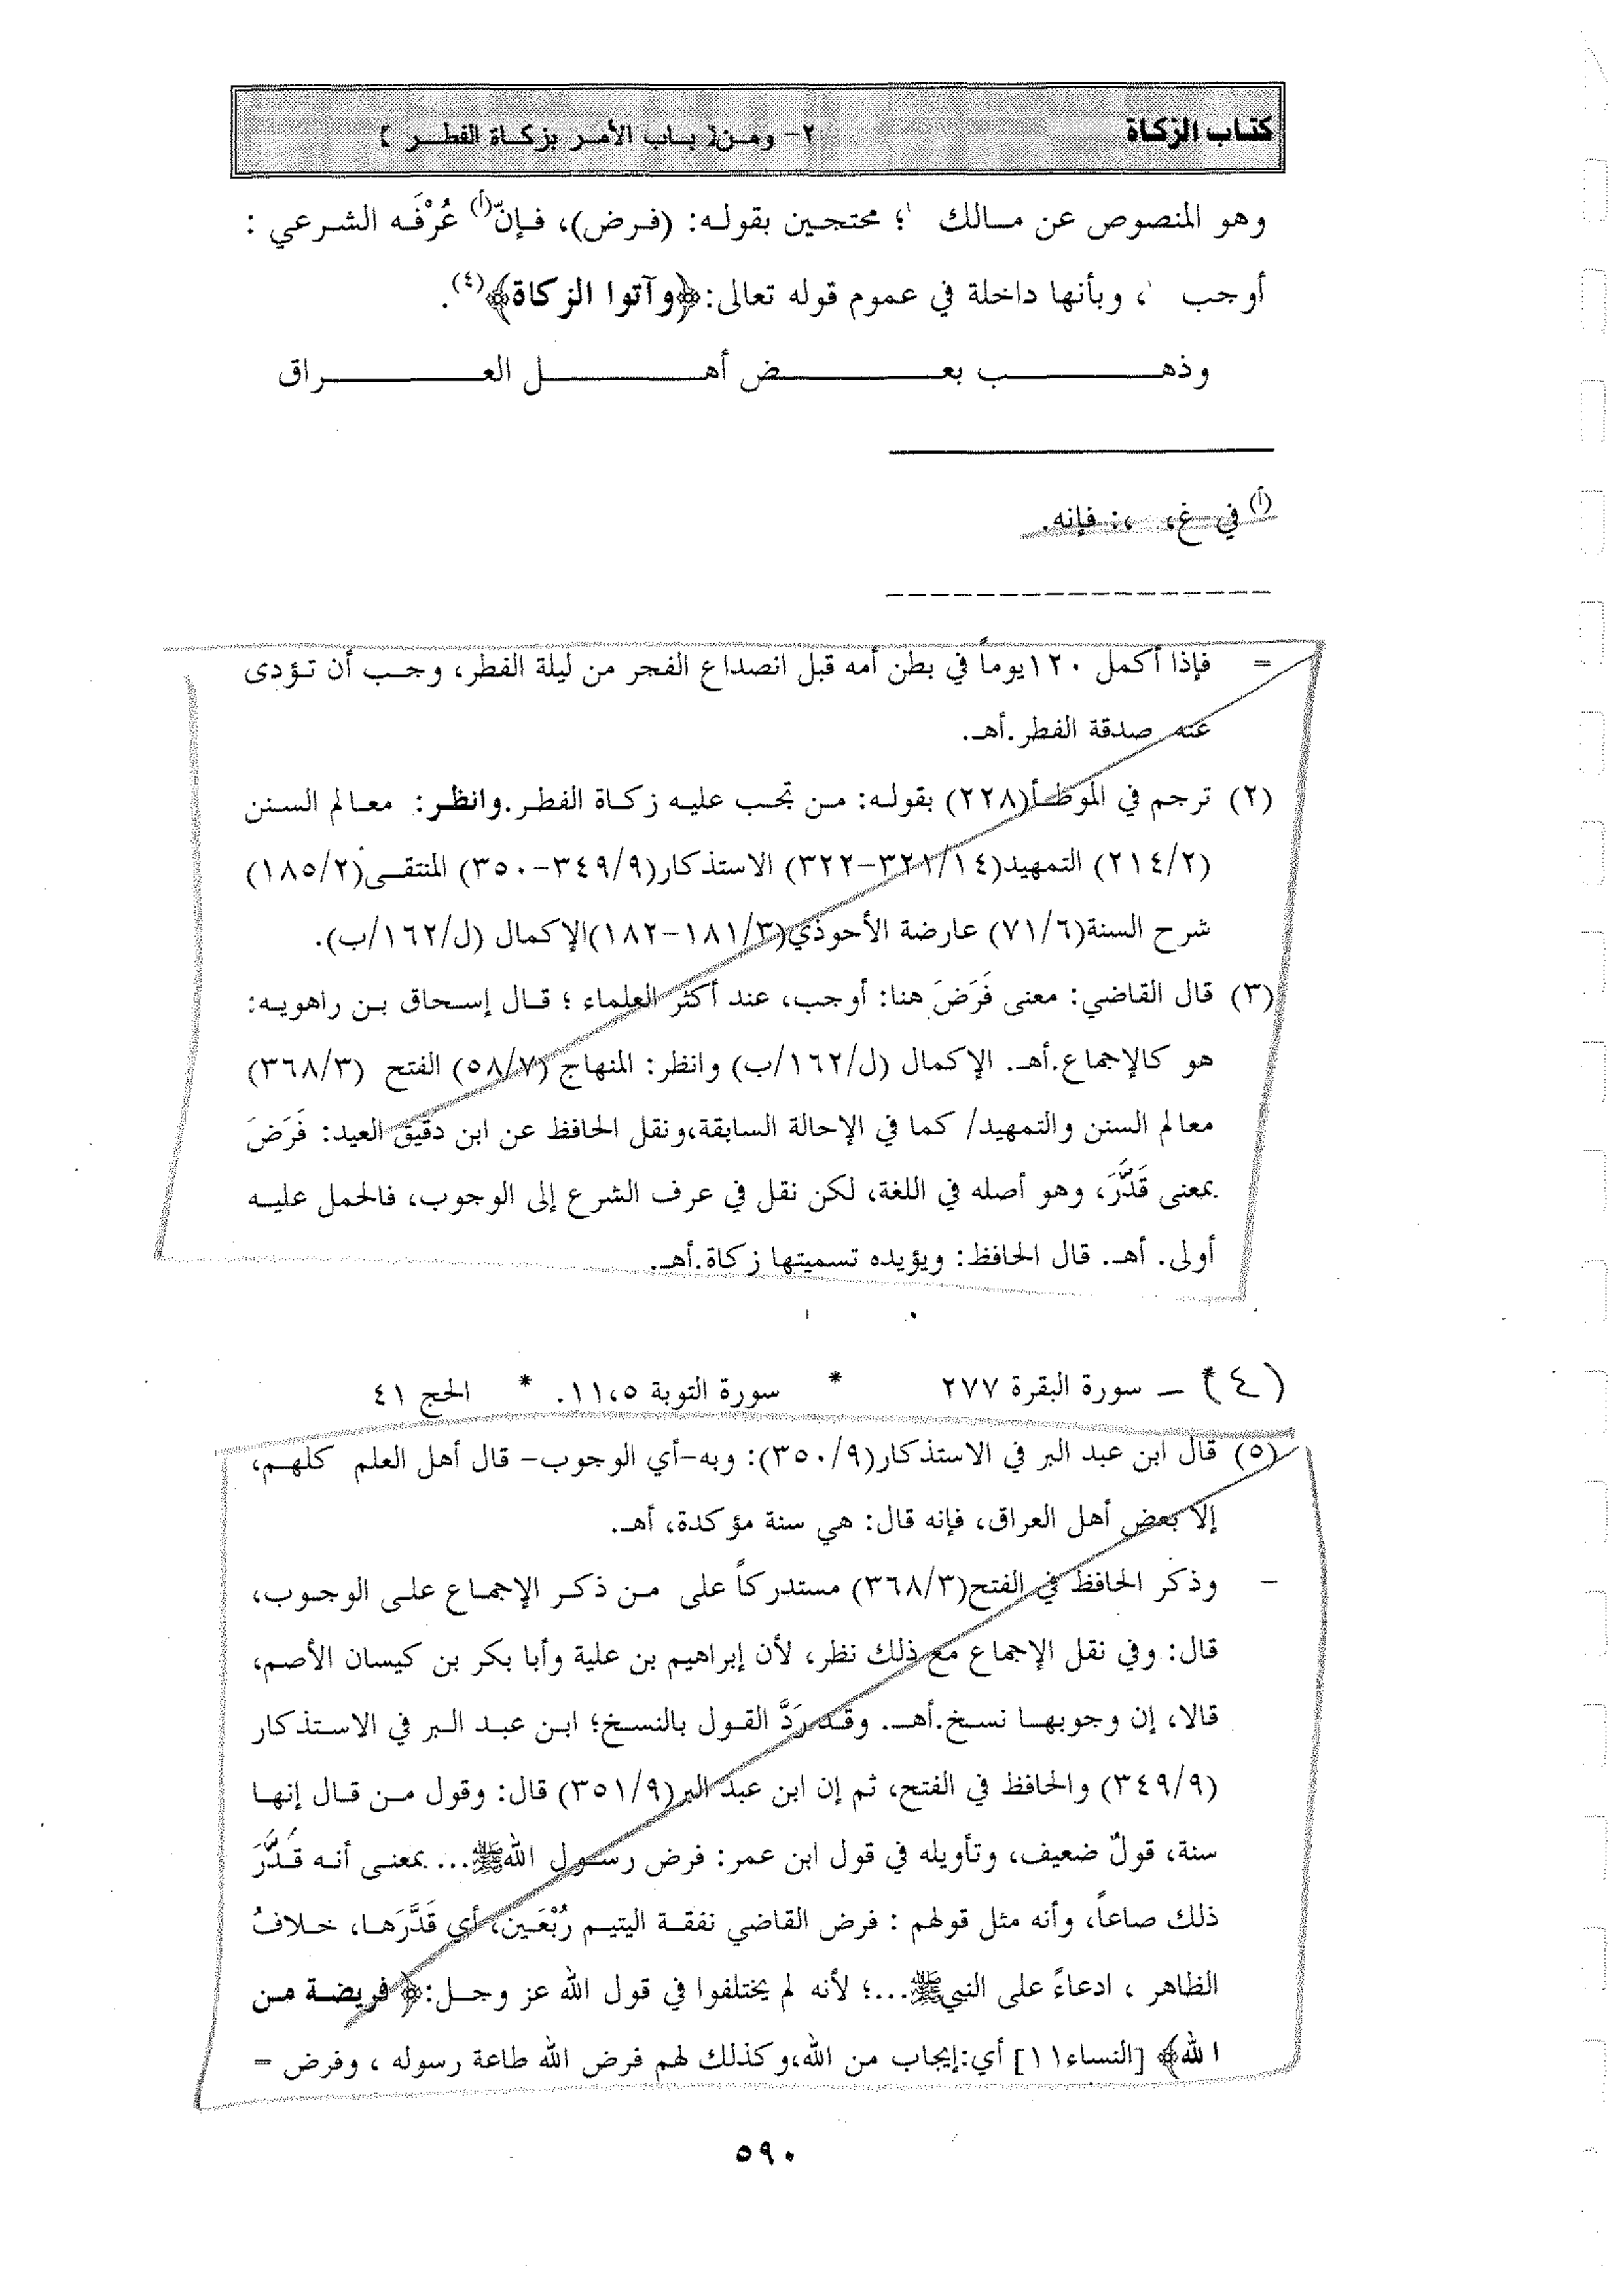 كتاب الزكاة ٢- ومن[ باب الأمر بزكاة الفطر ]
وهو المنصوص عن مالك ؛ محتجين بقوله: (فرض)، فإنّ(أ) عُرْفَه الشرعي :
أوجب ، وبأنها داخلة في عموم قوله تعالى:﴿وآتوا الزكاة﴾(٤).
وذهب بعض أهل العراق
(أ) في غ، ،: فإنه.
= فإذا أكمل ١٢٠يوماً في بطن أمه قبل انصداع الفجر من ليلة الفطر، وجب أن تؤدى
عنه صدقة الفطر.أهـ.
(٢) ترجم في الموطأ(٢٢٨) بقوله: من تجب عليه زكاة الفطر.وانظر: معالم السنن
(٢١٤/٢) التمهيد(٣٢١/١٤-٣٢٢) الاستذكار(٣٤٩/٩-٣٥٠) المنتقى(١٨٥/٢)
شرح السنة(٧١/٦) عارضة الأحوذي(١٨١/٣-١٨٢)الإكمال (ل/١٦٢/ب).
(٣) قال القاضي: معنى فَرَضَ هنا: أوجب، عند أكثر العلماء ؛ قال إسحاق بن راهويه:
هو كالإجماع.أهـ. الإكمال (ل/١٦٢/ب) وانظر: المنهاج (٥٨/٧) الفتح (٣٦٨/٣)
معالم السنن والتمهيد/ كما في الإحالة السابقة،ونقل الحافظ عن ابن دقيق العيد: فَرَضَ
بمعنى قَدَّرَ، وهو أصله في اللغة، لكن نقل في عرف الشرع إلى الوجوب، فالحمل عليه
أولى. أهـ. قال الحافظ: ويؤيده تسميتها زكاة.أهـ.
(٤) * – سورة البقرة ٢٧٧ * سورة التوبة ١١،٥. * الحج ٤١
(٥) قال ابن عبد البر في الاستذكار(٣٥٠/٩): وبه-أي الوجوب- قال أهل العلم كلهم،
إلا بعض أهل العراق، فإنه قال: هي سنة مؤكدة، أهـ.
- وذكر الحافظ في الفتح(٣٦٨/٣) مستدركاً على من ذكر الإجماع على الوجوب،
قال: وفي نقل الإجماع مع ذلك نظر، لأن إبراهيم بن علية وأبا بكر بن كيسان الأصم،
قالا، إن وجوبها نسخ.أهـ. وقد رَدَّ القول بالنسخ؛ ابن عبد البر في الاستذكار
(٣٤٩/٩) والحافظ في الفتح، ثم إن ابن عبد البر(٣٥١/٩) قال: وقول من قال إنها
سنة، قولٌ ضعيف، وتأويله في قول ابن عمر: فرض رسول اللهﷺ... بمعنى أنه قَدَّرَ
ذلك صاعاً، وأنه مثل قولهم : فرض القاضي نفقة اليتيم رُبْعَين، أي قَدَّرَها، خلافُ
الظاهر ، ادعاءً على النبيﷺ...؛ لأنه لم يختلفوا في قول الله عز وجل:﴿ فريضة من
الله﴾ [النساء١١] أي:إيجاب من الله،وكذلك لهم فرض الله طاعة رسوله ، وفرض =
٥٩٠